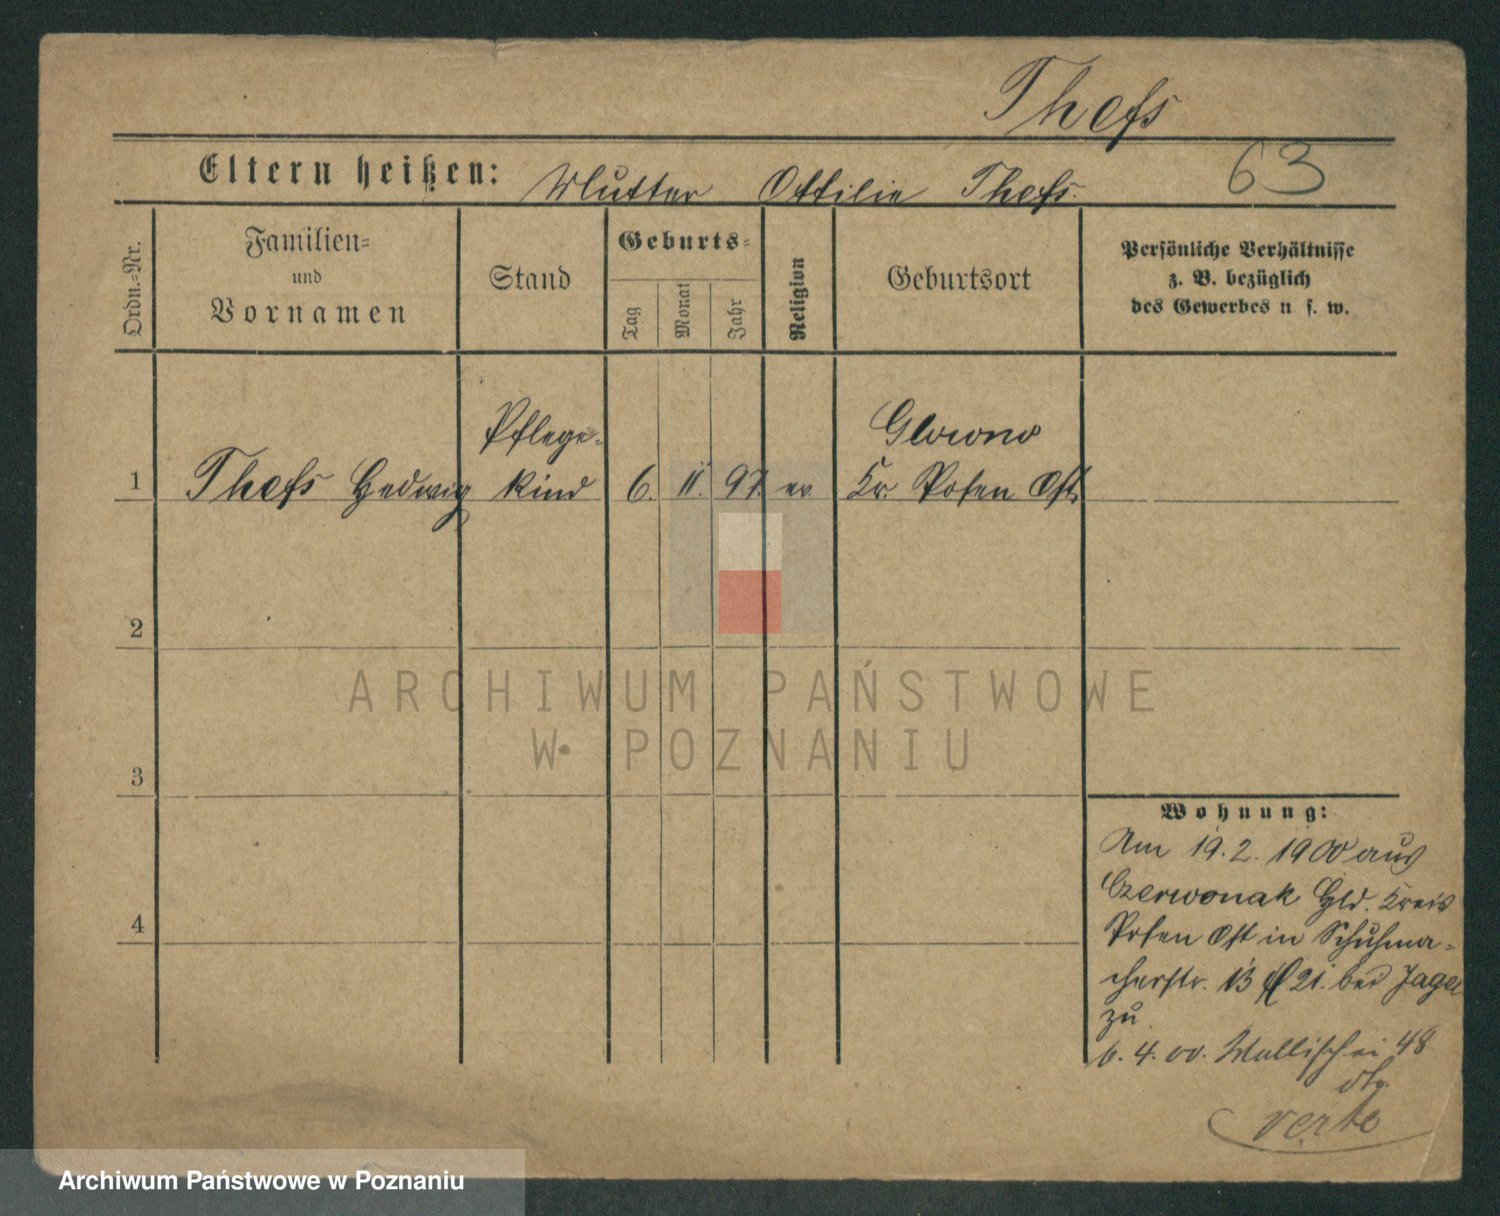 Thefs
63
Eltern heißen: Mutter Ottilie Thefs.
Ordn.-Nr.
Familien-
und
Vornamen
Stand
Geburts-
Tag
Monat
Jahr
Religion
Geburtsort
Persönliche Verhältnisse
z. B. bezüglich
des Gewerbes u s. w.
1 Thefs Hedwig
Pflege-
kind
6. 11. 97. ev
Glowno
Kr. Posen Ost.
2
3
4
Wohnung:
Am 19. 2. 1900 aus
Czerwonak Gld. Kreis
Posen Ost in Schuhma-
cherstr. 13 21. bei Jage
zu
6. 4. 00. Wallischei 48
verte
ARCHIWUM PAŃSTWOWE
W POZNANIU
Archiwum Państwowe w Poznaniu